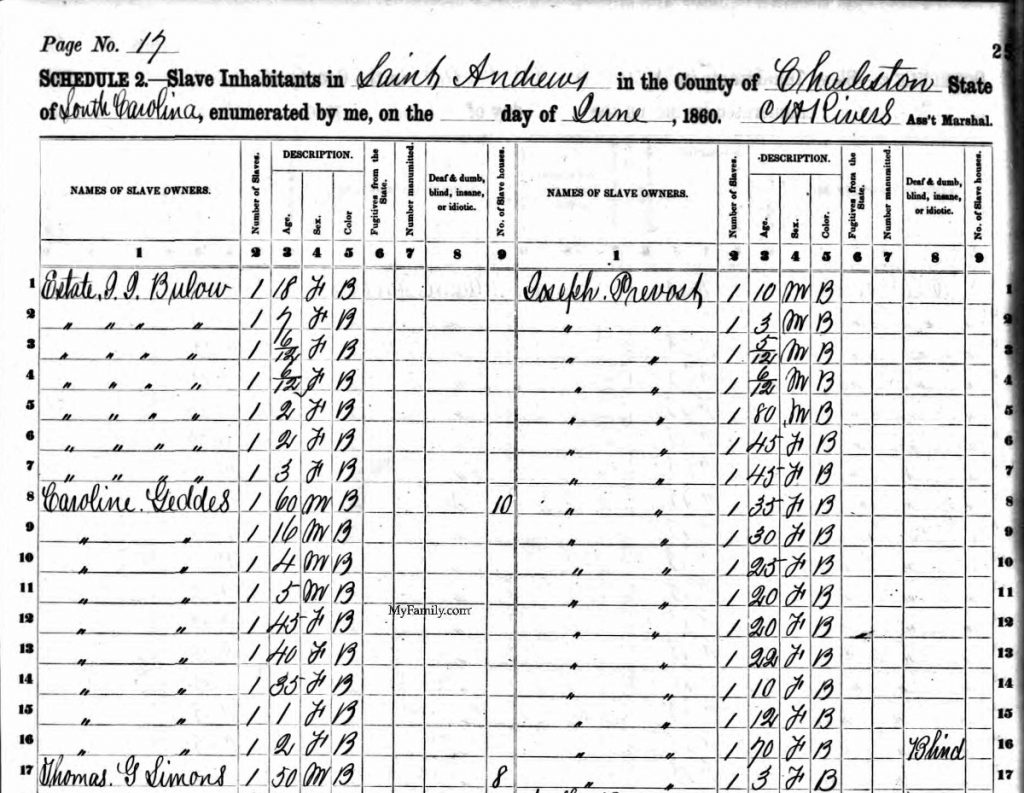 Page No. 17
25
SCHEDULE 2.—Slave Inhabitants in Saint Andrews in the County of Charleston State
of South Carolina, enumerated by me, on the day of June, 1860. C H Rivers Ass't Marshal.
NAMES OF SLAVE OWNERS. Number of Slaves. DESCRIPTION. Age. Sex. Color Fugitives from the State. Number manumitted. Deaf & dumb, blind, insane, or idiotic. No. of Slave houses. NAMES OF SLAVE OWNERS. Number of Slaves. DESCRIPTION. Age. Sex. Color. Fugitives from the State. Number manumitted. Deaf & dumb, blind, insane, or idiotic. No. of Slave houses.
1 2 3 4 5 6 7 8 9 1 2 3 4 5 6 7 8 9
1 Estate, J. J. Bulow 1 18 F B Joseph Prevost 1 10 M B 1
2 " " " " 1 7 F B " " 1 3 M B 2
3 " " " " 1 6/12 F B " " 1 5/12 M B 3
4 " " " " 1 6/12 F B " " 1 6/12 M B 4
5 " " " " 1 2 F B " " 1 80 M B 5
6 " " " " 1 2 F B " " 1 45 F B 6
7 " " " " 1 3 F B " " 1 45 F B 7
8 Caroline Geddes 1 60 M B 10 " " 1 35 F B 8
9 " " 1 16 M B " " 1 30 F B 9
10 " " 1 4 M B " " 1 25 F B 10
11 " " 1 5 M B " " 1 20 F B 11
MyFamily.com
12 " " 1 45 F B " " 1 20 F B 12
13 " " 1 40 F B " " 1 22 F B 13
14 " " 1 35 F B " " 1 10 F B 14
15 " " 1 1 F B " " 1 12 F B 15
16 " " 1 2 F B " " 1 70 F B Blind 16
17 Thomas G Simons 1 50 M B 8 " " 1 3 F B 17